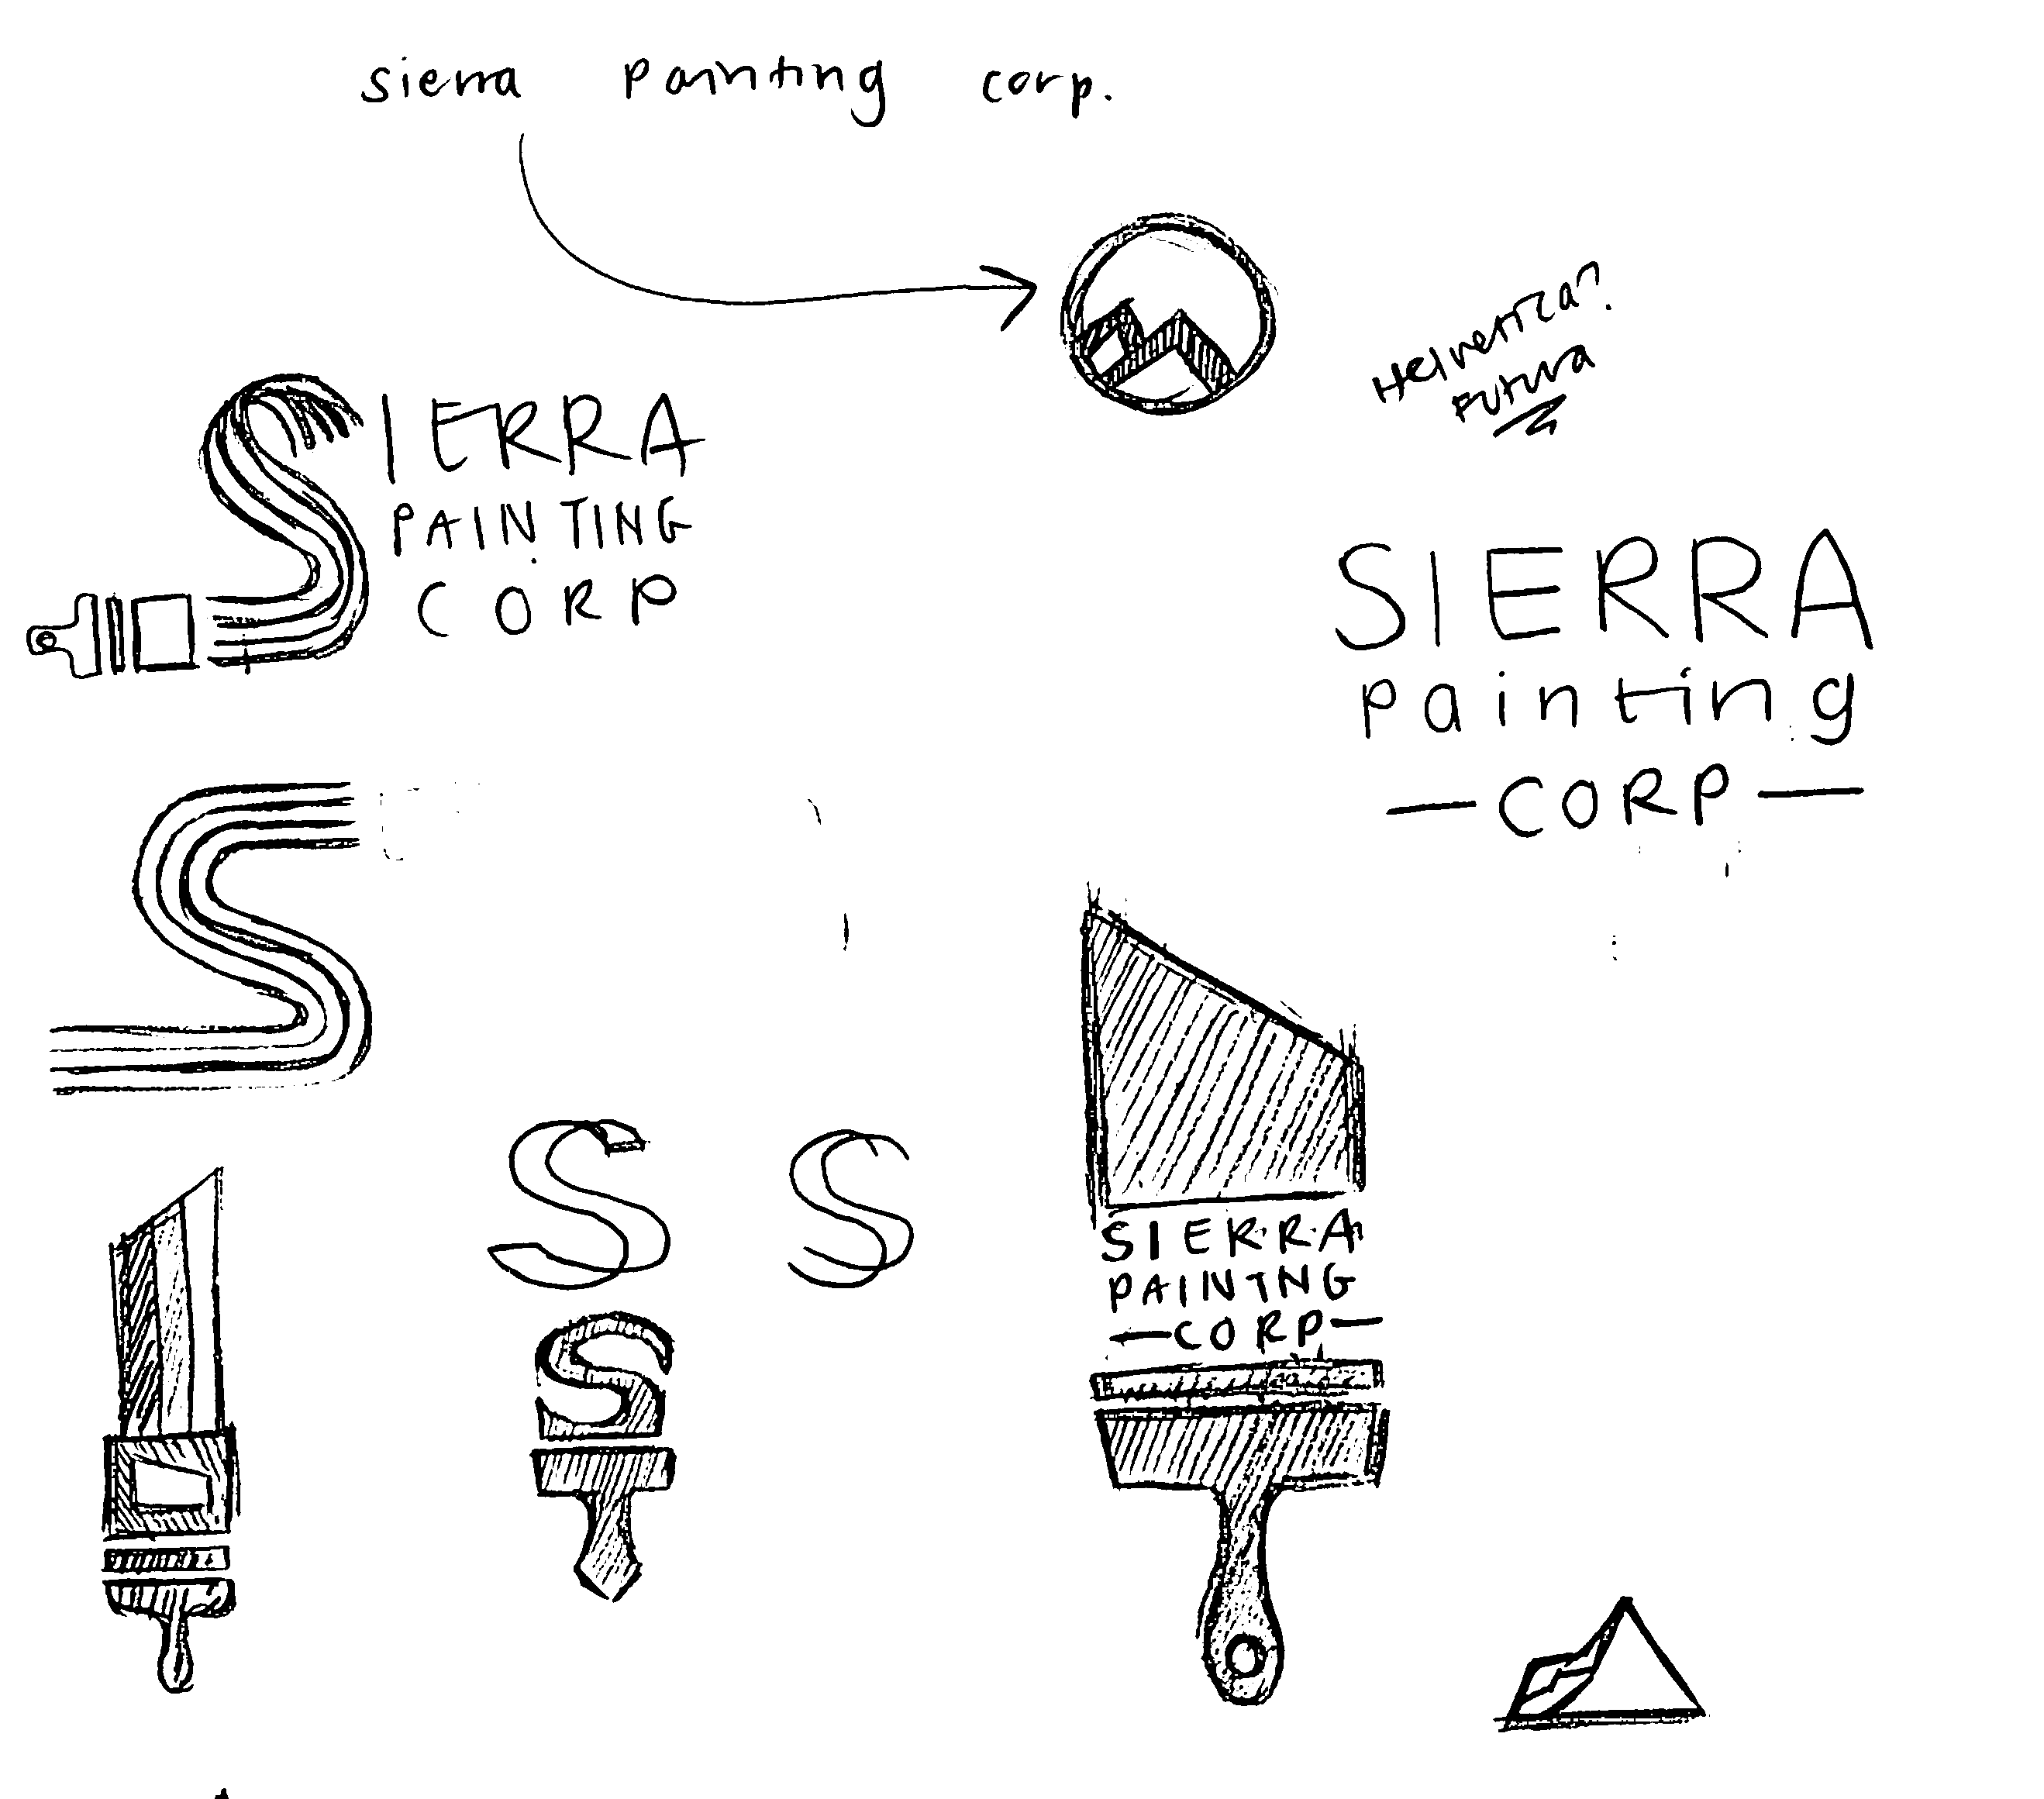 sierra painting corp.
Helvetica?
Futura
SIERRA
PAINTING
CORP
SIERRA
painting
— CORP —
S
S
S
S
SIERRA
PAINTNG
— CORP —